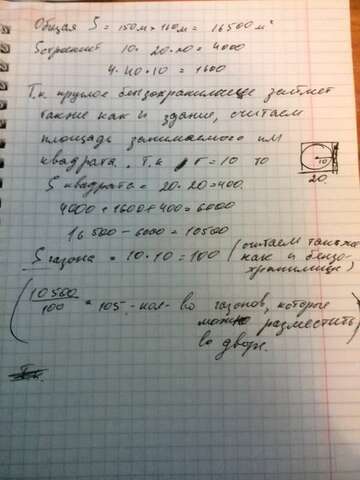 Общая S = 150м × 110м = 16500 м²
Sстроений 10 · 20 · 20 = 4000
4 · 40 · 10 = 1600
Т.к круглое бензохранилище займет
так же как и здание, считаем
площадь занимаемого им
квадрата. Т.к r = 10 то
10
20
S квадрата = 20 · 20 = 400.
4000 + 1600 + 400 = 6000
16 500 - 6000 = 10500
S газона = 10 · 10 = 100 (считаем так же
как и бензо-
хранилище)
(10500/100 = 105 - кол-во газонов, которые
можно разместить
во дворе.)